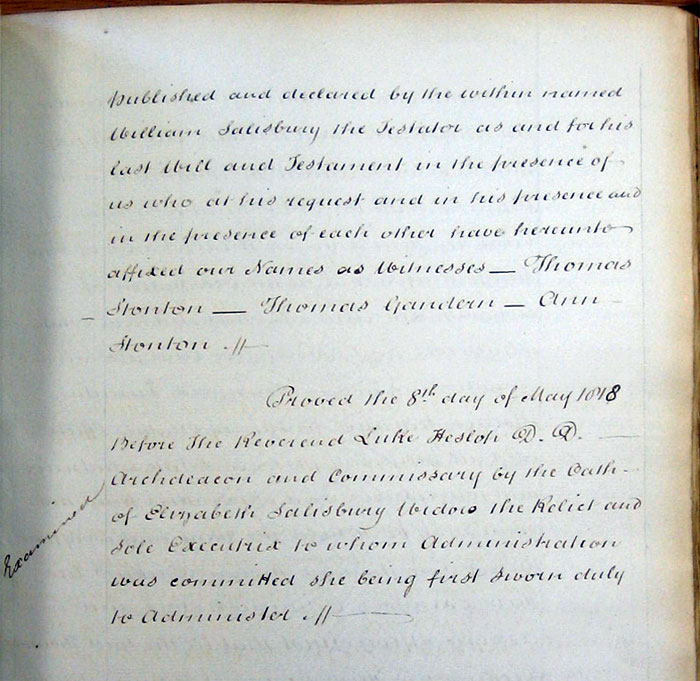 published and declared by the within named
William Salisbury the Testator as and for his
last Will and Testament in the presence of
us who at his request and in his presence and
in the presence of each other have hereunto
affixed our Names as Witnesses — Thomas
Stonton — Thomas Gandern — Ann
Stonton . //
Proved the 8th day of May 1818
Before The Reverend Luke Heslop D. D.
Archdeacon and Commissary by the Oath
of Elizabeth Salisbury Widow the Relict and
Sole Executrix to whom Administration
was committed she being first Sworn duly
to Administer . //
Examined